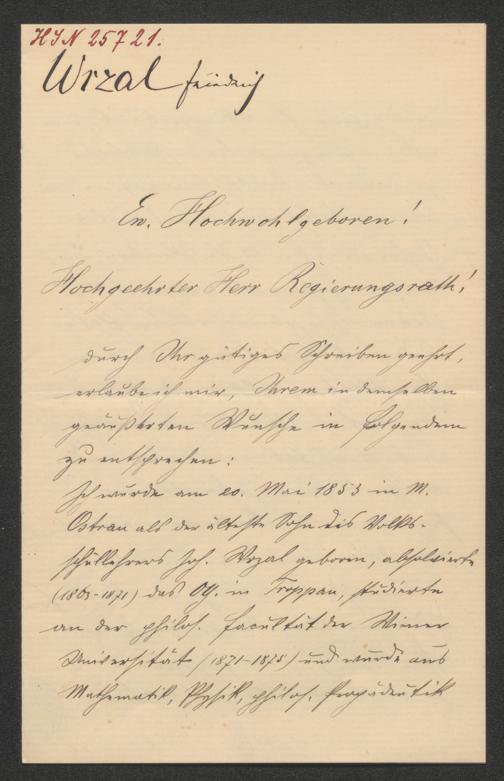 HIN 25721.
Wrzal Friedrich
Ew. Hochwohlgeboren!
Hochgeehrter Herr Regierungsrath!
durch Ihr gütiges Schreiben geehrt,
erlaube ich mir, Ihrem in demselben
geäußerten Wunsche in Folgendem
zu entsprechen:
Ich wurde am 20. Mai 1853 in M.
Ostrau als der älteste Sohn des Volks-
schullehrers Joh. Wrzal geboren, absolvierte
(1863-1871) das OG. in Troppau, studierte
an der philos. Facultät der Wiener
Universität (1871-1875) und wurde aus
Mathematik, Physik, philos. Propädeutik